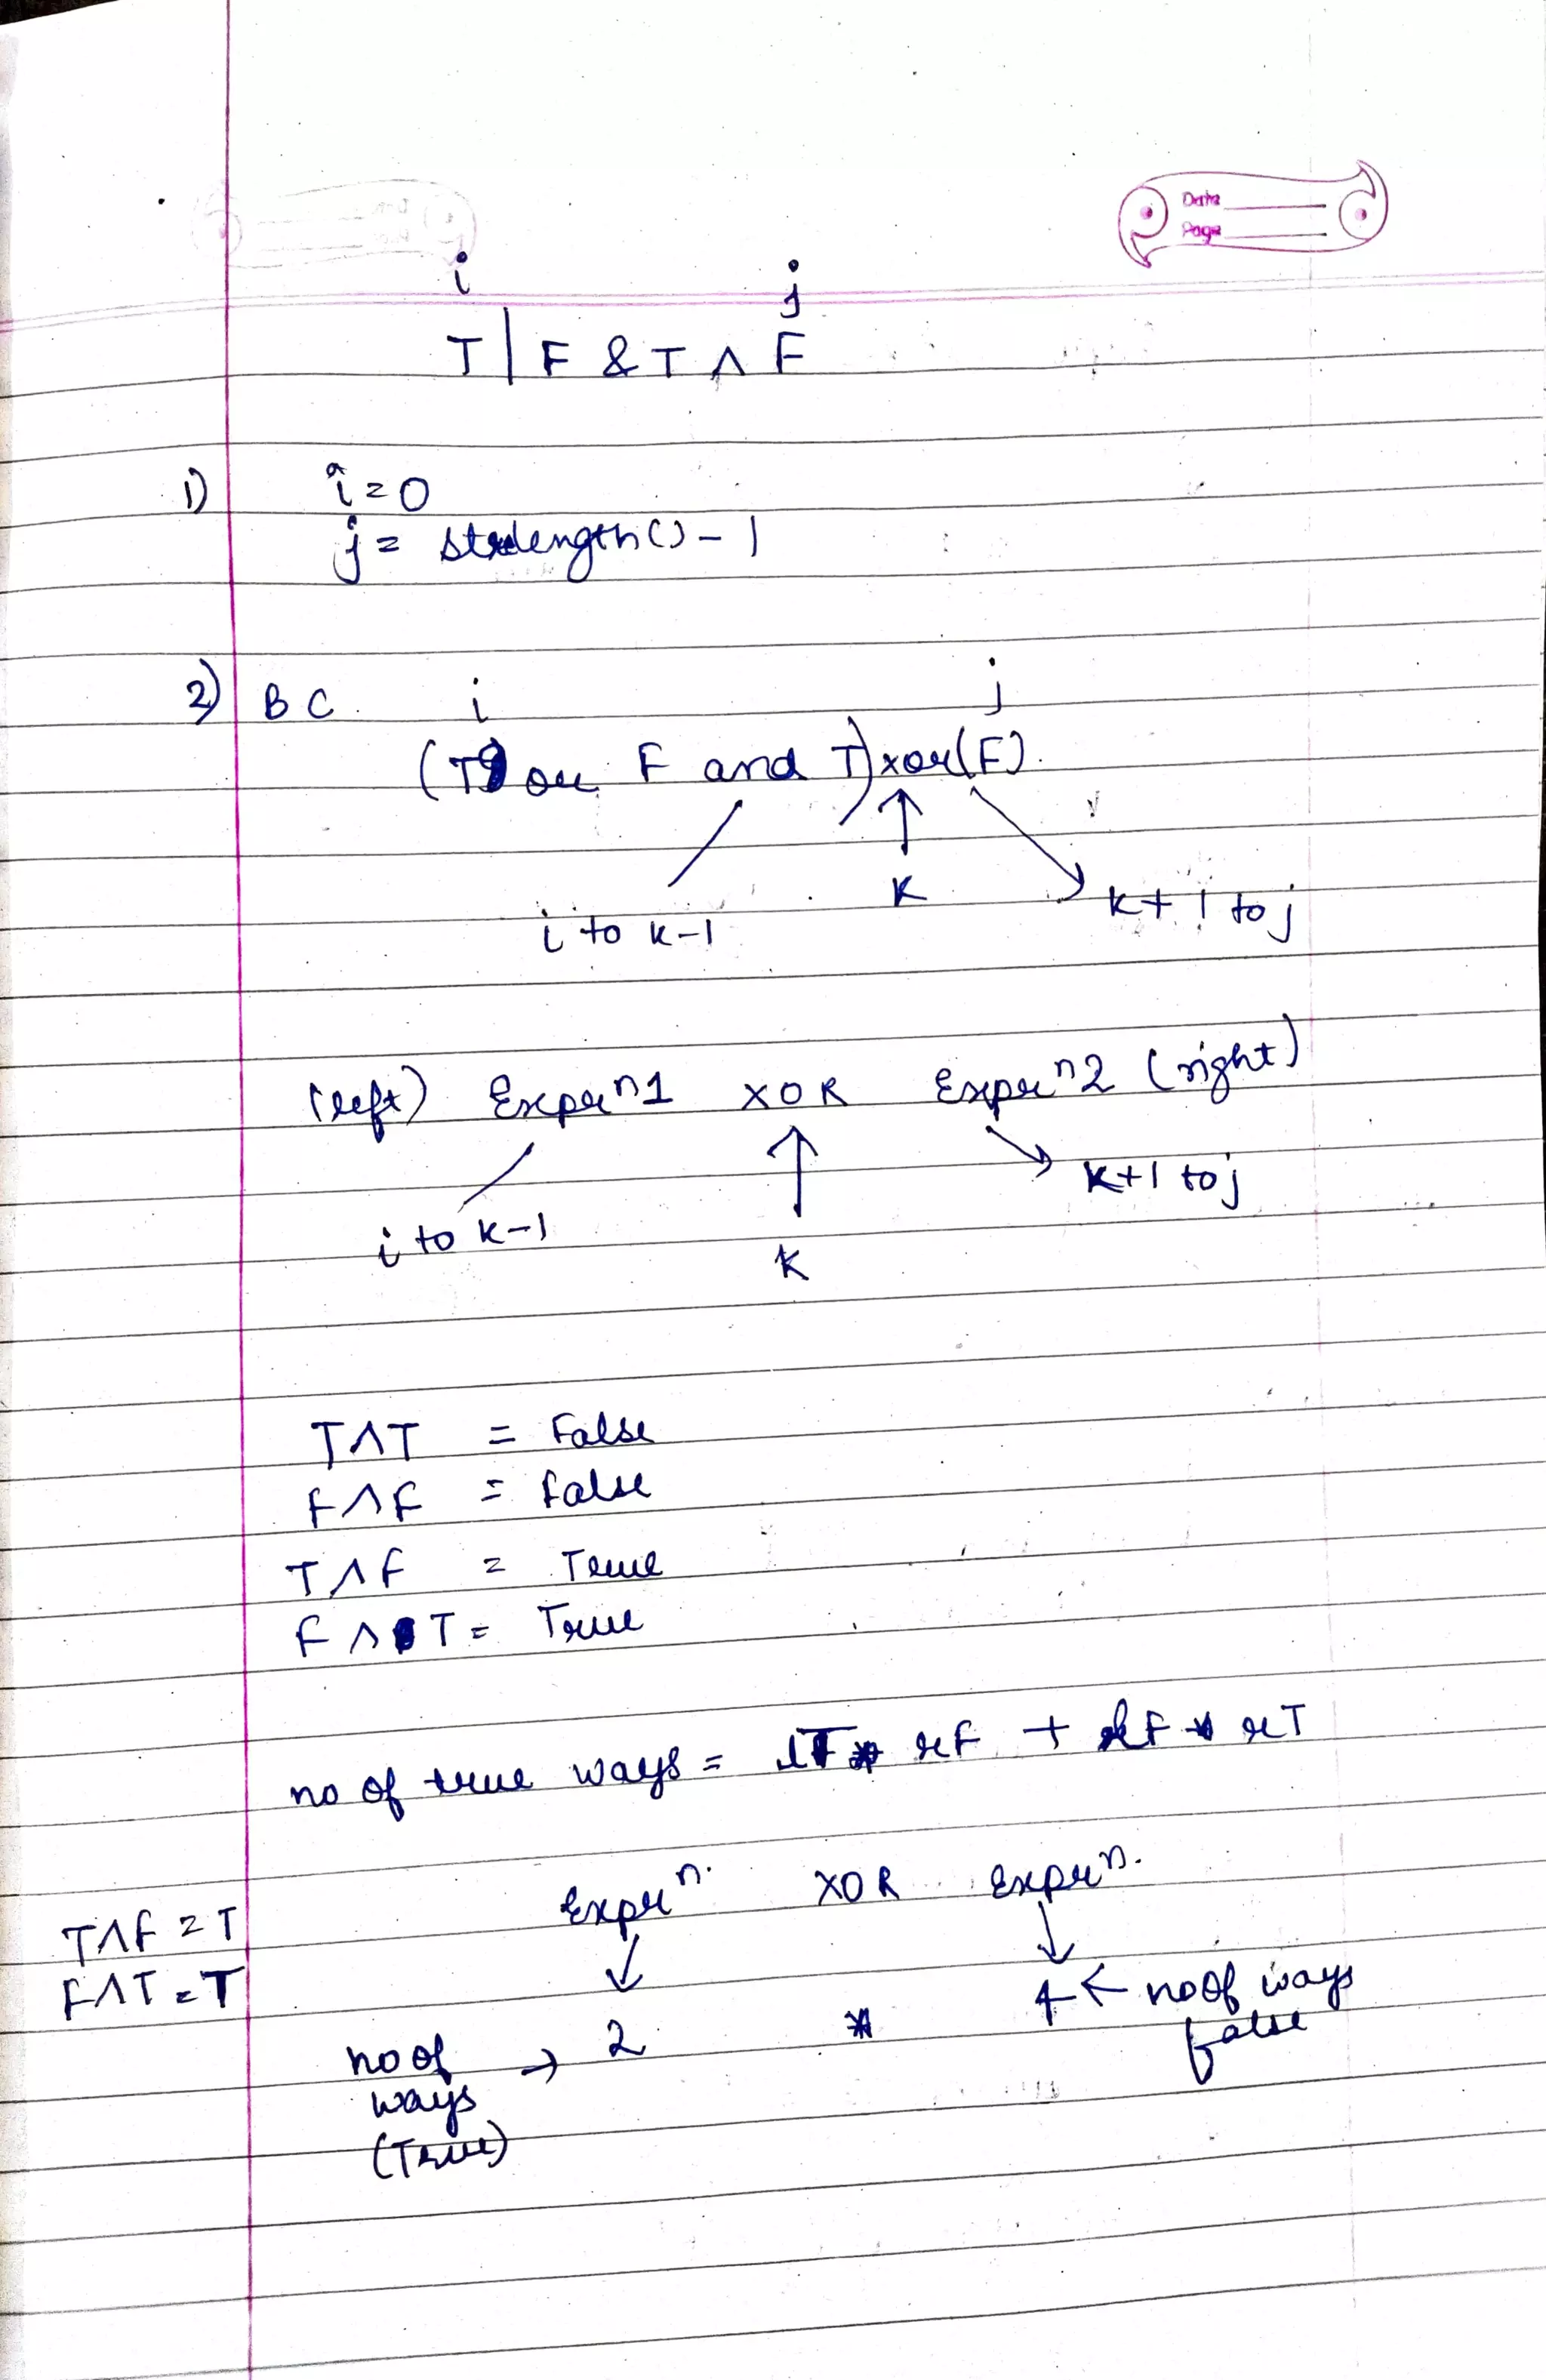 Date
Page
i j
T | F & T ∧ F
1) i = 0
j = strlength() - 1
2) B C i j
(T or F and T) xor (F).
K
i to k-1 k+1 to j
(left) Exprⁿ1 XOR Exprⁿ2 (right)
k+1 to j
i to k-1
K
T∧T = False
F∧F = false
T∧F = True
F∧T = True
no of true ways = lT * rF + lF * rT
Exprⁿ. XOR Exprⁿ.
T∧F = T
F∧T = T
no of ways (True) → 2 * 4 ← no of ways false